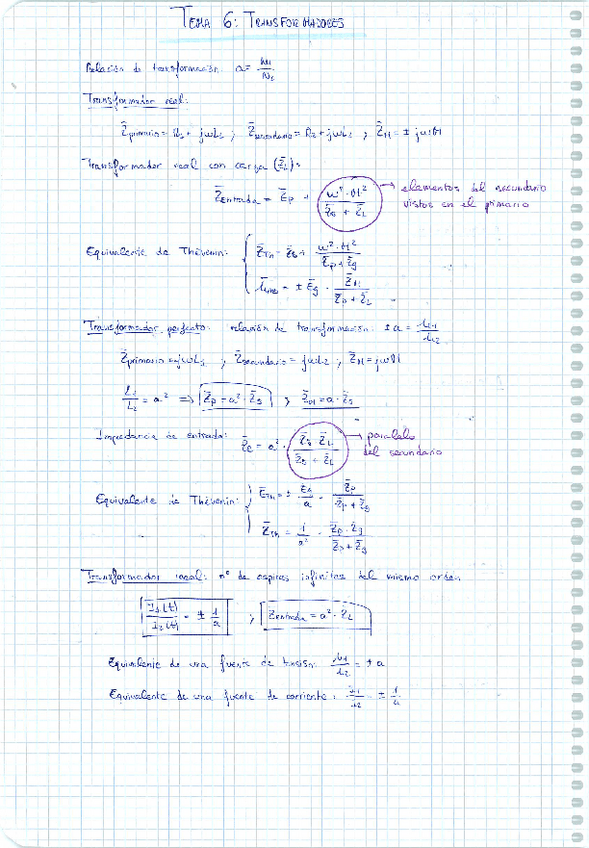 TEMA 6: TRANSFORMADORES
Relación de transformación: a = N1/N2
Transformador real:
Z̄primario = R1 + jωL1 ; Z̄secundario = R2 + jωL2 ; Z̄M = ± jωM
Transformador real con carga (Z̄L):
Z̄entrada = Z̄p + (ω²·M²)/(Z̄s + Z̄L) → elementos del secundario
vistos en el primario
Equivalente de Thévenin: Z̄Th = Z̄s + (ω²·M²)/(Z̄p + Z̄g)
= ± Ēg · Z̄M/
Transformador perfecto: relación de transformación: ± a = u1/u2
Z̄primario = jωL1 ; Z̄secundario = jωL2 ; Z̄M = jωM
L1/L2 = a² ⇒ Z̄p = a²·Z̄s ; Z̄M = a·Z̄s
Impedancia de entrada: Z̄e = a² · (Z̄s·Z̄L)/(Z̄s + Z̄L) → paralelo
del secundario
Equivalente de Thévenin: ĒTh = ± Ēg/a · Z̄p/(Z̄p + Z̄g)
Z̄Th = 1/a² · (Z̄p·Z̄g)/(Z̄p + Z̄g)
Transformador ideal: nº de espiras infinitas del mismo orden
I1(t)/I2(t) = ± 1/a ; Z̄entrada = a²·Z̄L
Equivalente de una fuente de tensión: u1/u2 = ± a
Equivalente de una fuente de corriente: i1/i2 = ± 1/a